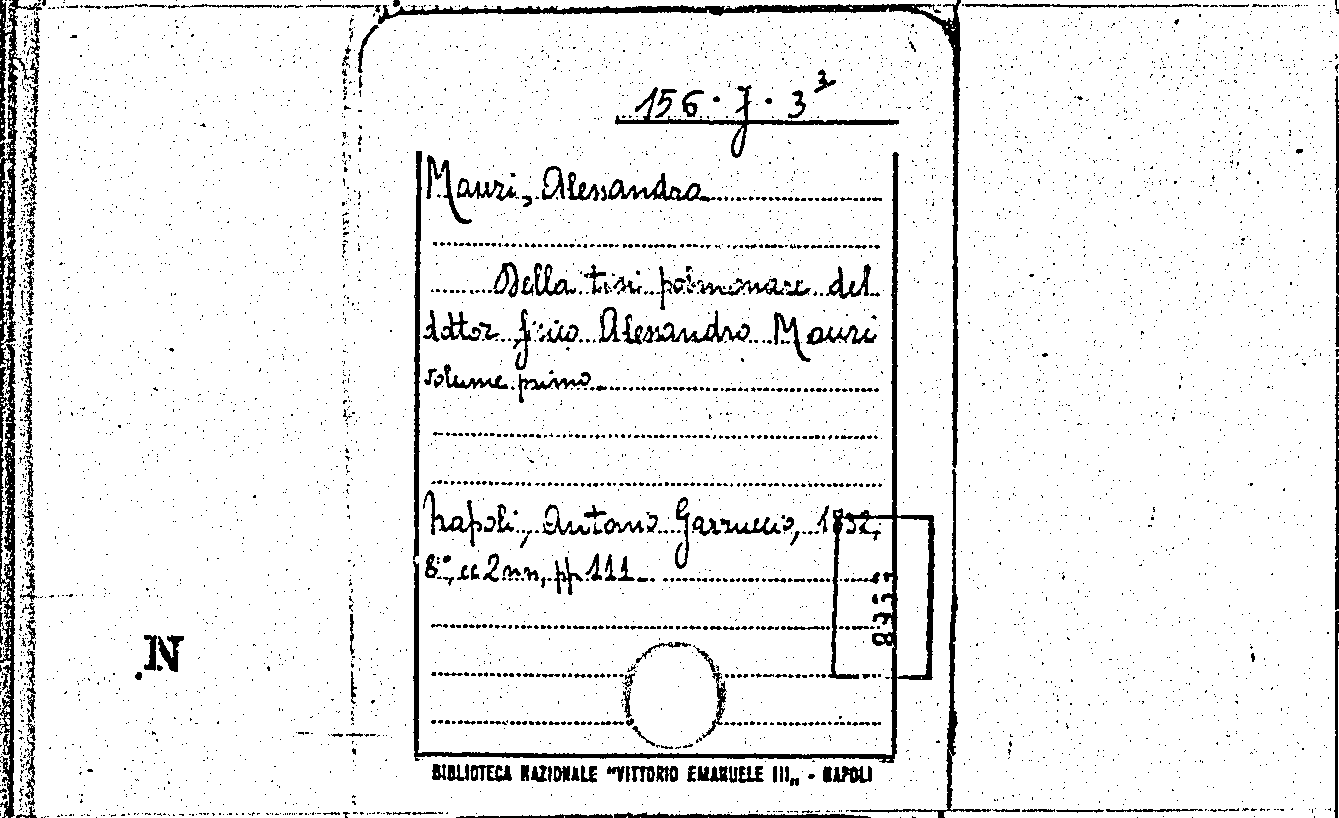 156 · J · 3³
Mauri, Alessandro
Della tisi polmonare del
dottor fisico Alessandro Mauri
volume primo
Napoli, Antonio Garruccio, 1832,
8°, cc 2 nn, pp 111
N
BIBLIOTECA NAZIONALE "VITTORIO EMANUELE III„ - NAPOLI